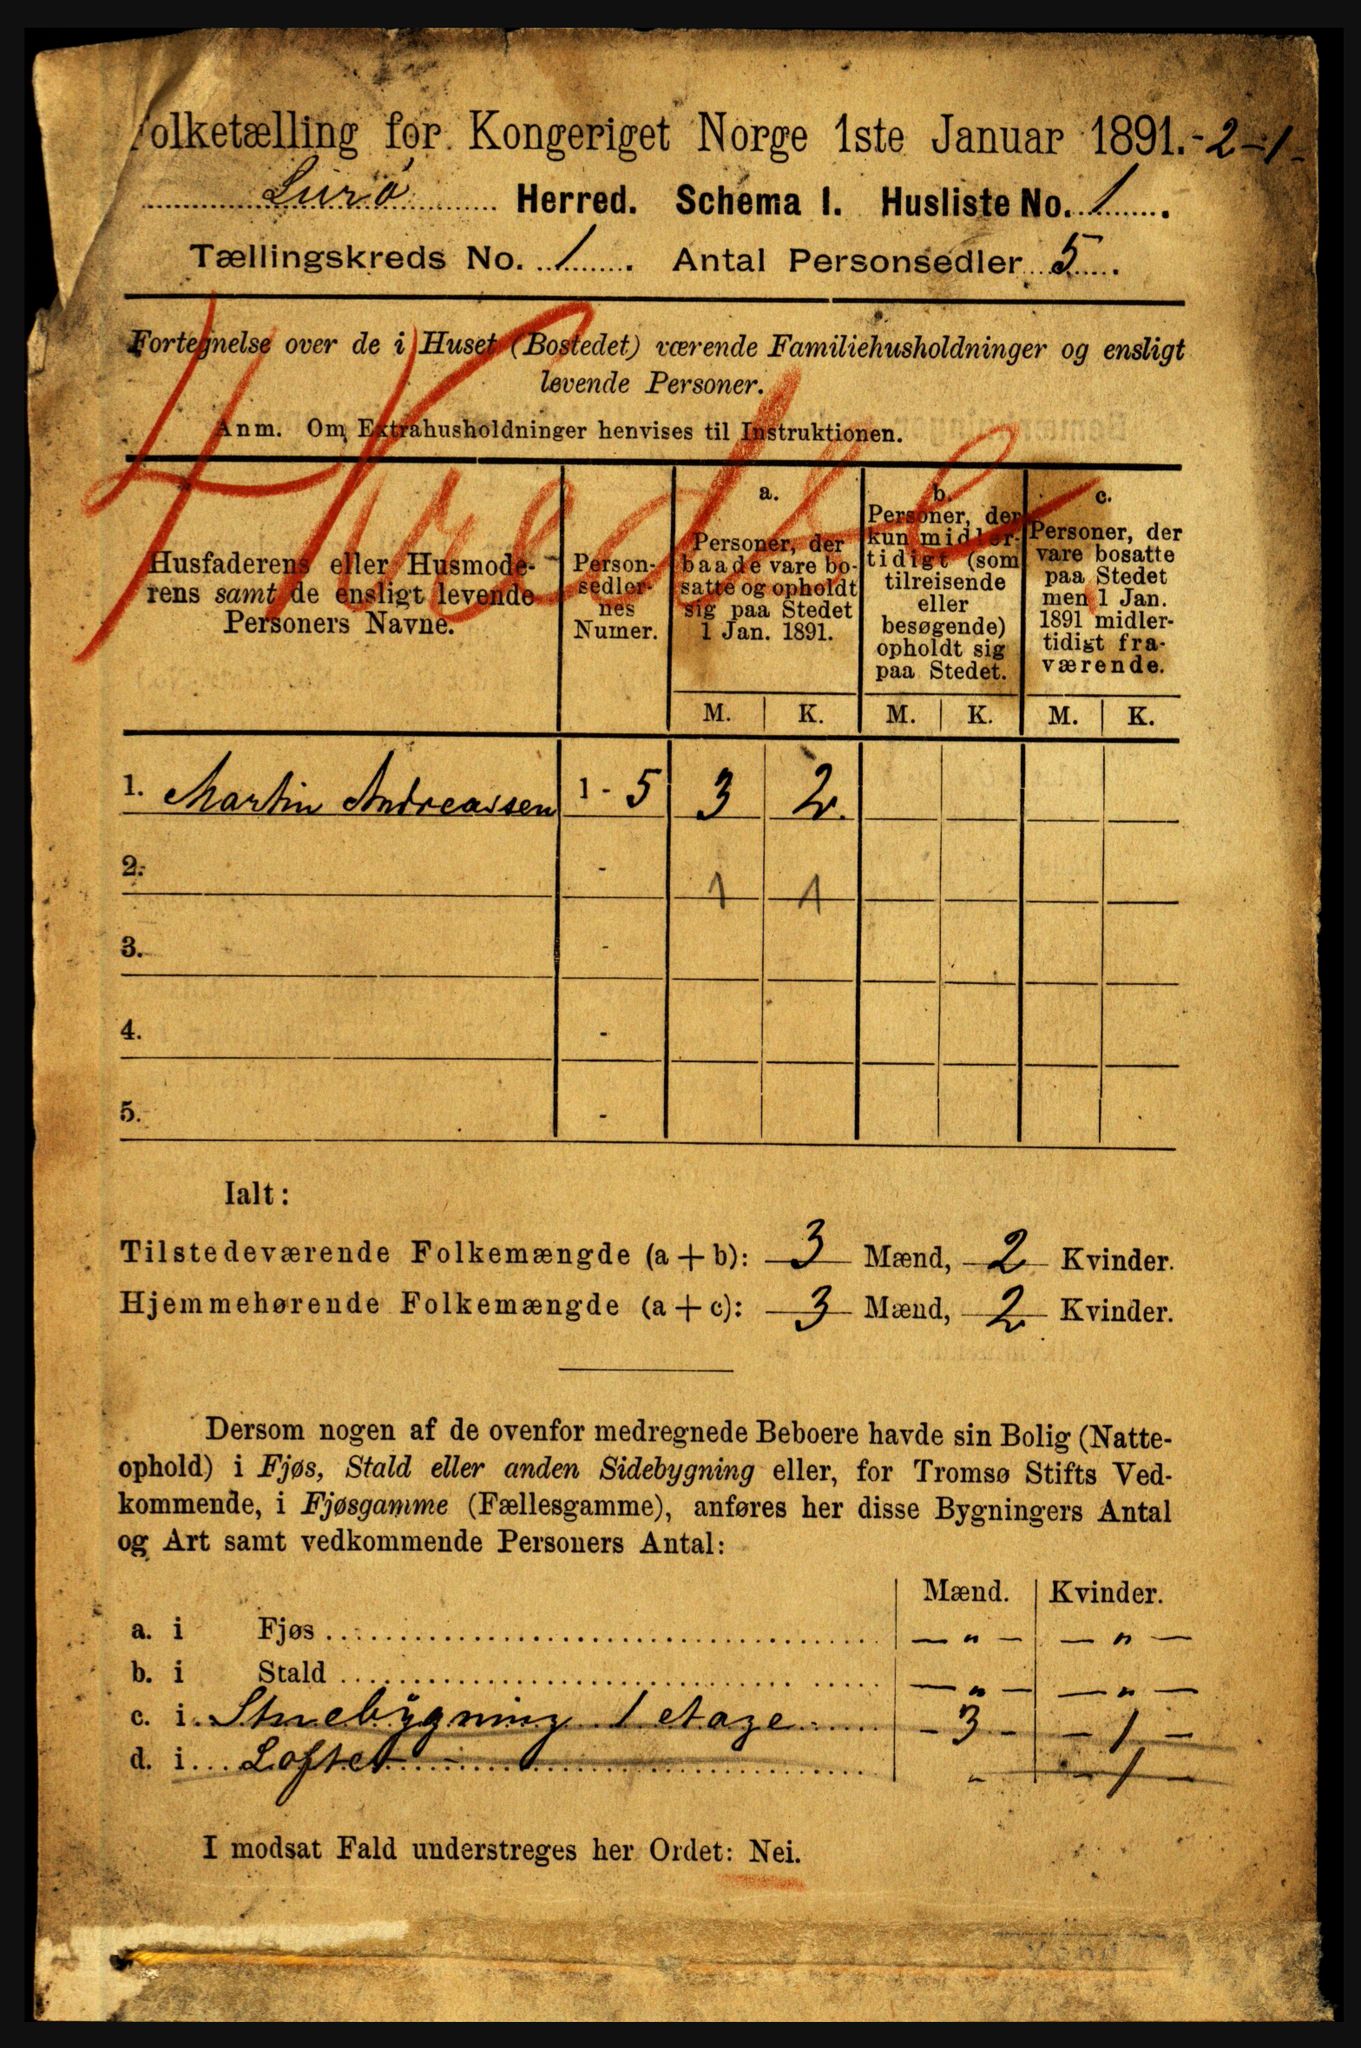 Folketælling for Kongeriget Norge 1ste Januar 1891. -2-1-
Lurö Herred. Schema I. Husliste No. 1.
Tællingskreds No. 1. Antal Personsedler 5.
Fortegnelse over de i Huset (Bostedet) værende Familiehusholdninger og ensligt
levende Personer.
Anm. Om Extrahusholdninger henvises til Instruktionen.
Kredse
Husfaderens eller Husmode-
rens samt de ensligt levende
Personers Navne.
Person-
sedler-
nes
Numer.
a.
Personer, der
baade vare bo-
satte og opholdt
sig paa Stedet
1 Jan. 1891.
b.
Personer, der
kun midler-
tidigt (som
tilreisende
eller
besøgende)
opholdt sig
paa Stedet.
c.
Personer, der
vare bosatte
paa Stedet
men 1 Jan.
1891 midler-
tidigt fra-
værende.
M. K. M. K. M. K.
1. Martin Andreassen 1 - 5 3 2.
2. - 1 1
3. -
4. -
5. -
Ialt:
Tilstedeværende Folkemængde (a + b): 3 Mænd, 2 Kvinder.
Hjemmehørende Folkemængde (a + c): 3 Mænd, 2 Kvinder.
Dersom nogen af de ovenfor medregnede Beboere havde sin Bolig (Natte-
ophold) i Fjøs, Stald eller anden Sidebygning eller, for Tromsø Stifts Ved-
kommende, i Fjøsgamme (Fællesgamme), anføres her disse Bygningers Antal
og Art samt vedkommende Personers Antal:
Mænd. Kvinder.
a. i Fjøs - " - - " -
b. i Stald - " - - " -
c. i Stuebygning 1 etage - 3 - - 1 -
d. i Loftet - " - 1 -
I modsat Fald understreges her Ordet: Nei.